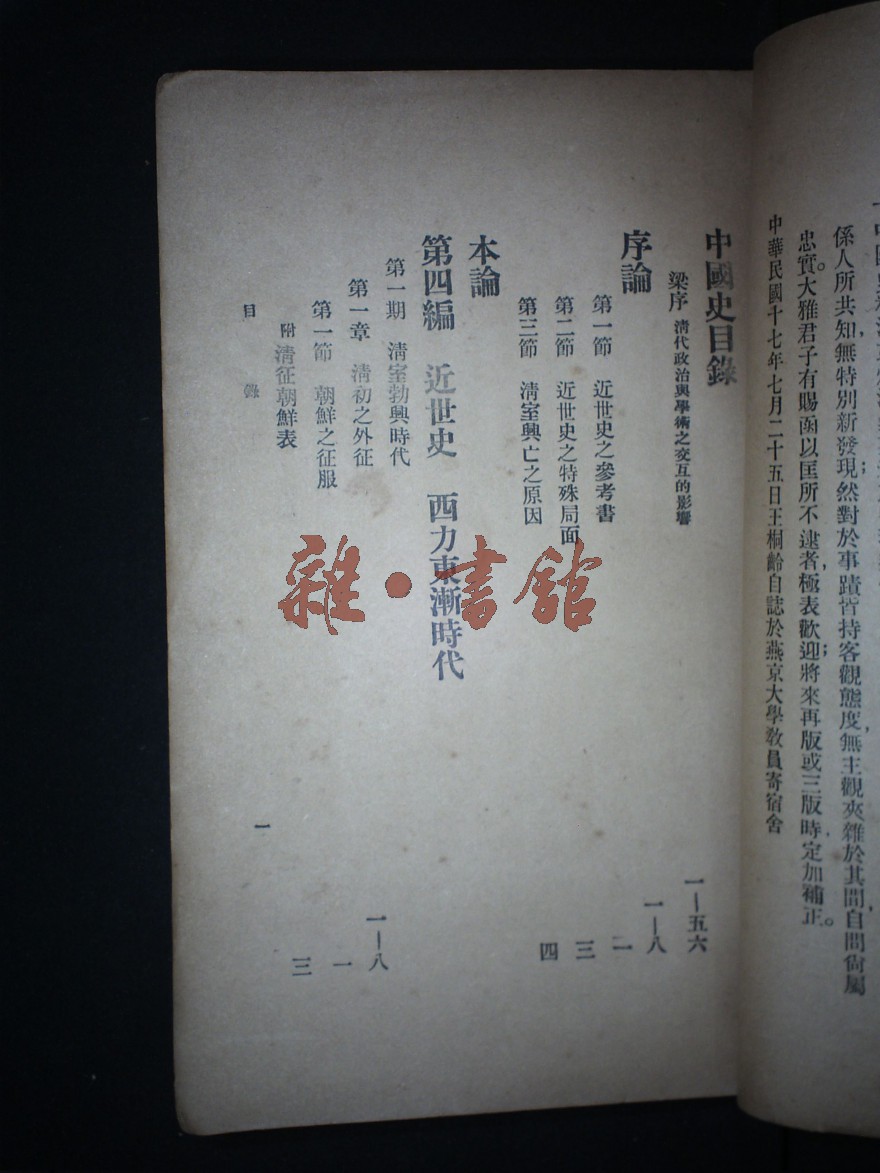 係人所共知無特別新發現;然對於事蹟皆持客觀態度,無主觀夾雜於其間,自問尙屬
忠實。大雅君子有賜函以匡所不逮者,極表歡迎;將來再版或三版時定加補正。
中華民國十七年七月二十五日王桐齡自誌於燕京大學敎員寄宿舍
中國史目錄
梁序 淸代政治與學術之交互的影響 一—五六
序論 一—八
第一節 近世史之參考書 一
第二節 近世史之特殊局面 三
第三節 淸室興亡之原因 四
本論
第四編 近世史 西力東漸時代
第一期 淸室勃興時代
第一章 淸初之外征 一—八
第一節 朝鮮之征服 一
附 淸征朝鮮表 三
目錄 一
雜·書館